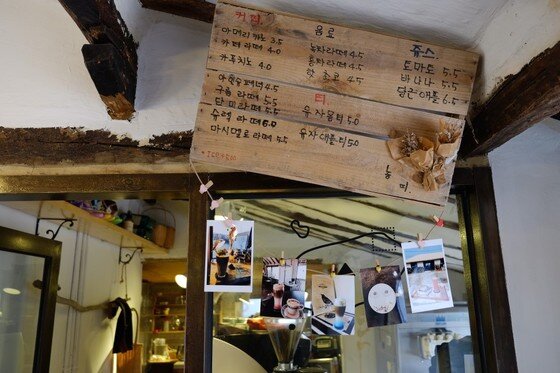 커피
아메리카노 3.5
카페라떼 4.0
카푸치노 4.0
아인슈페너 4.5
구름라떼 5.5
단미라떼 5.5
슈렉라떼 6.0
마시멜로라떼 5.5
음료
녹차라떼 4.5
홍차라떼 4.5
핫초코 4.5
티
유자몽티 5.0
유자애플티 5.0
쥬스
토마토 5.5
바나나 5.5
당근애플 6.5